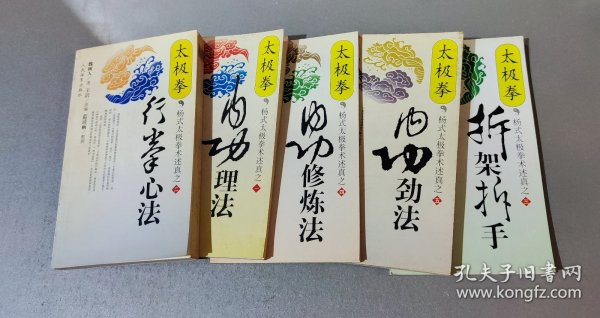 魏树人
太极拳
杨式太极拳术述真之二
行拳心法
太极拳
杨式太极拳术述真之一
内功理法
太极拳
杨式太极拳术述真之四
内功修炼法
太极拳
杨式太极拳术述真之五
内功劲法
太极拳
杨式太极拳术述真之三
拆架拆手
孔夫子旧书网
www.kongfz.com